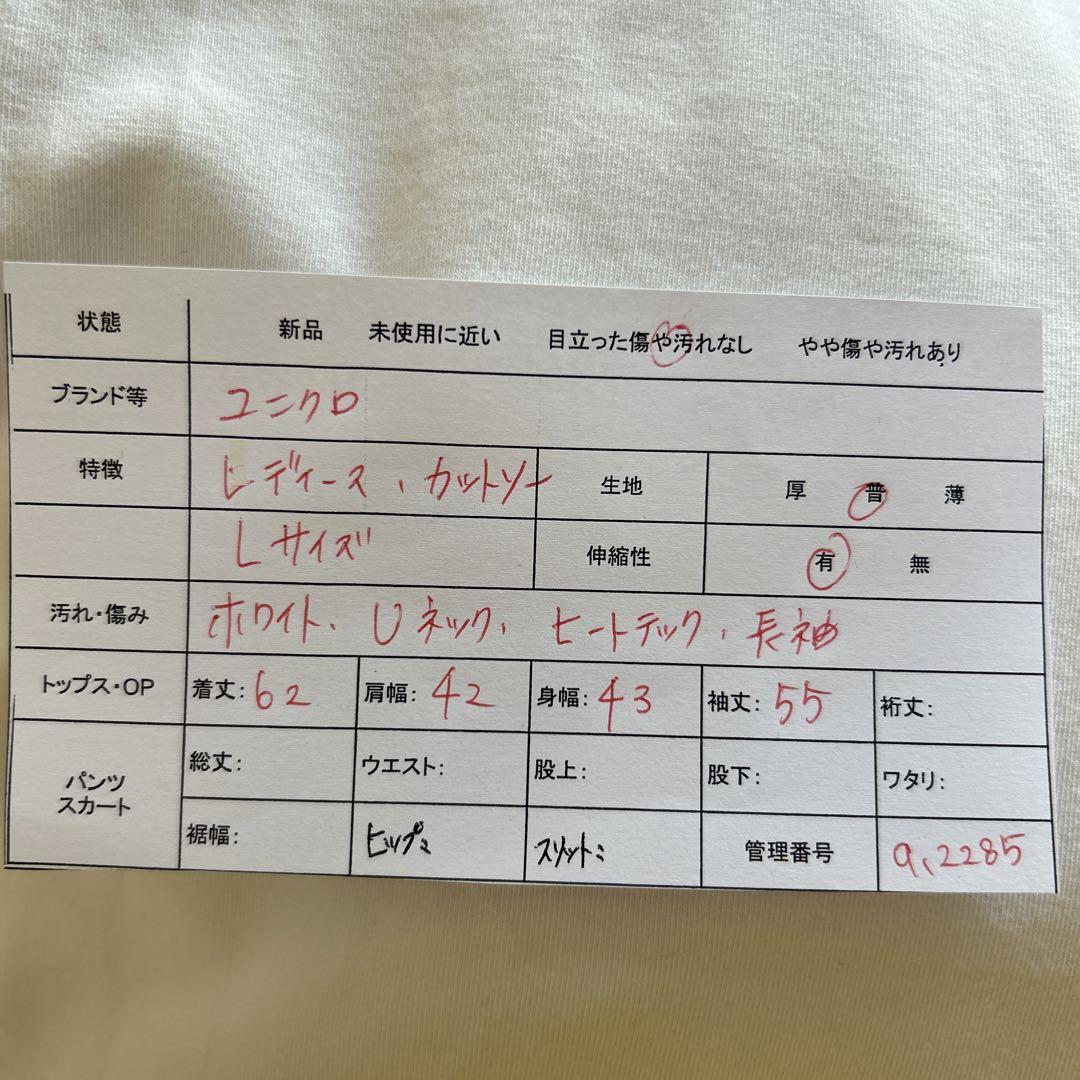 状態 新品 未使用に近い 目立った傷や汚れなし やや傷や汚れあり
ブランド等 ユニクロ
特徴 レディース、カットソー 生地 厚 普 薄
Lサイズ 伸縮性 有 無
汚れ・傷み ホワイト、Uネック、ヒートテック、長袖
トップス・OP 着丈:62 肩幅:42 身幅:43 袖丈:55 裄丈:
パンツ スカート 総丈: ウエスト: 股上: 股下: ワタリ:
裾幅: ヒップ: スリット: 管理番号 a、2285